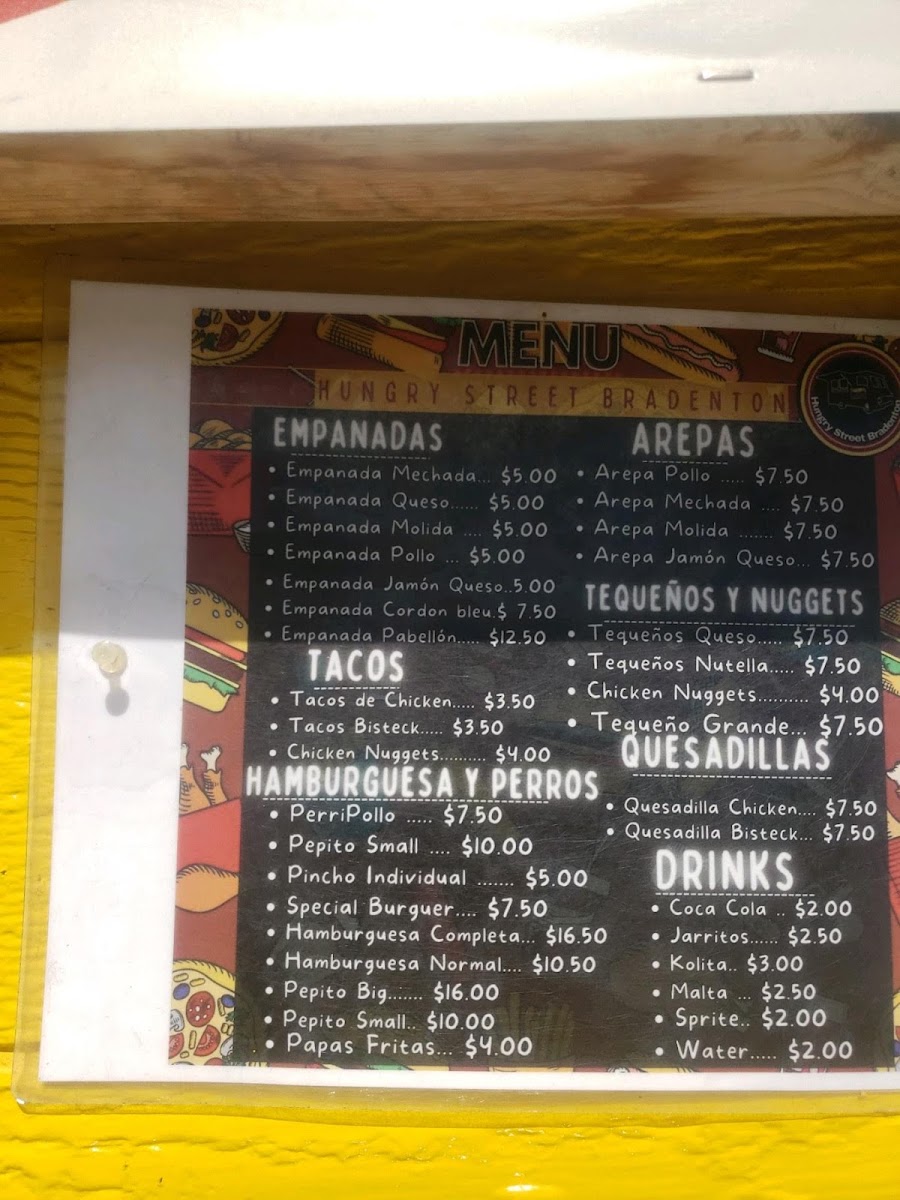 MENU
HUNGRY STREET BRADENTON
Hungry Street Bradenton
EMPANADAS
• Empanada Mechada... $5.00
• Empanada Queso...... $5.00
• Empanada Molida .... $5.00
• Empanada Pollo ... $5.00
• Empanada Jamón Queso..5.00
• Empanada Cordon bleu.$ 7.50
• Empanada Pabellón..... $12.50
TACOS
• Tacos de Chicken..... $3.50
• Tacos Bisteck..... $3.50
• Chicken Nuggets.......... $4.00
HAMBURGUESA Y PERROS
• PerriPollo ..... $7.50
• Pepito Small .... $10.00
• Pincho Individual ....... $5.00
• Special Burguer.... $7.50
• Hamburguesa Completa... $16.50
• Hamburguesa Normal.... $10.50
• Pepito Big....... $16.00
• Pepito Small.. $10.00
• Papas Fritas... $4.00
AREPAS
• Arepa Pollo ..... $7.50
• Arepa Mechada .... $7.50
• Arepa Molida ....... $7.50
• Arepa Jamón Queso... $7.50
TEQUEÑOS Y NUGGETS
• Tequeños Queso..... $7.50
• Tequeños Nutella..... $7.50
• Chicken Nuggets.......... $4.00
• Tequeño Grande... $7.50
QUESADILLAS
• Quesadilla Chicken.... $7.50
• Quesadilla Bisteck... $7.50
DRINKS
• Coca Cola .. $2.00
• Jarritos...... $2.50
• Kolita.. $3.00
• Malta ... $2.50
• Sprite.. $2.00
• Water..... $2.00